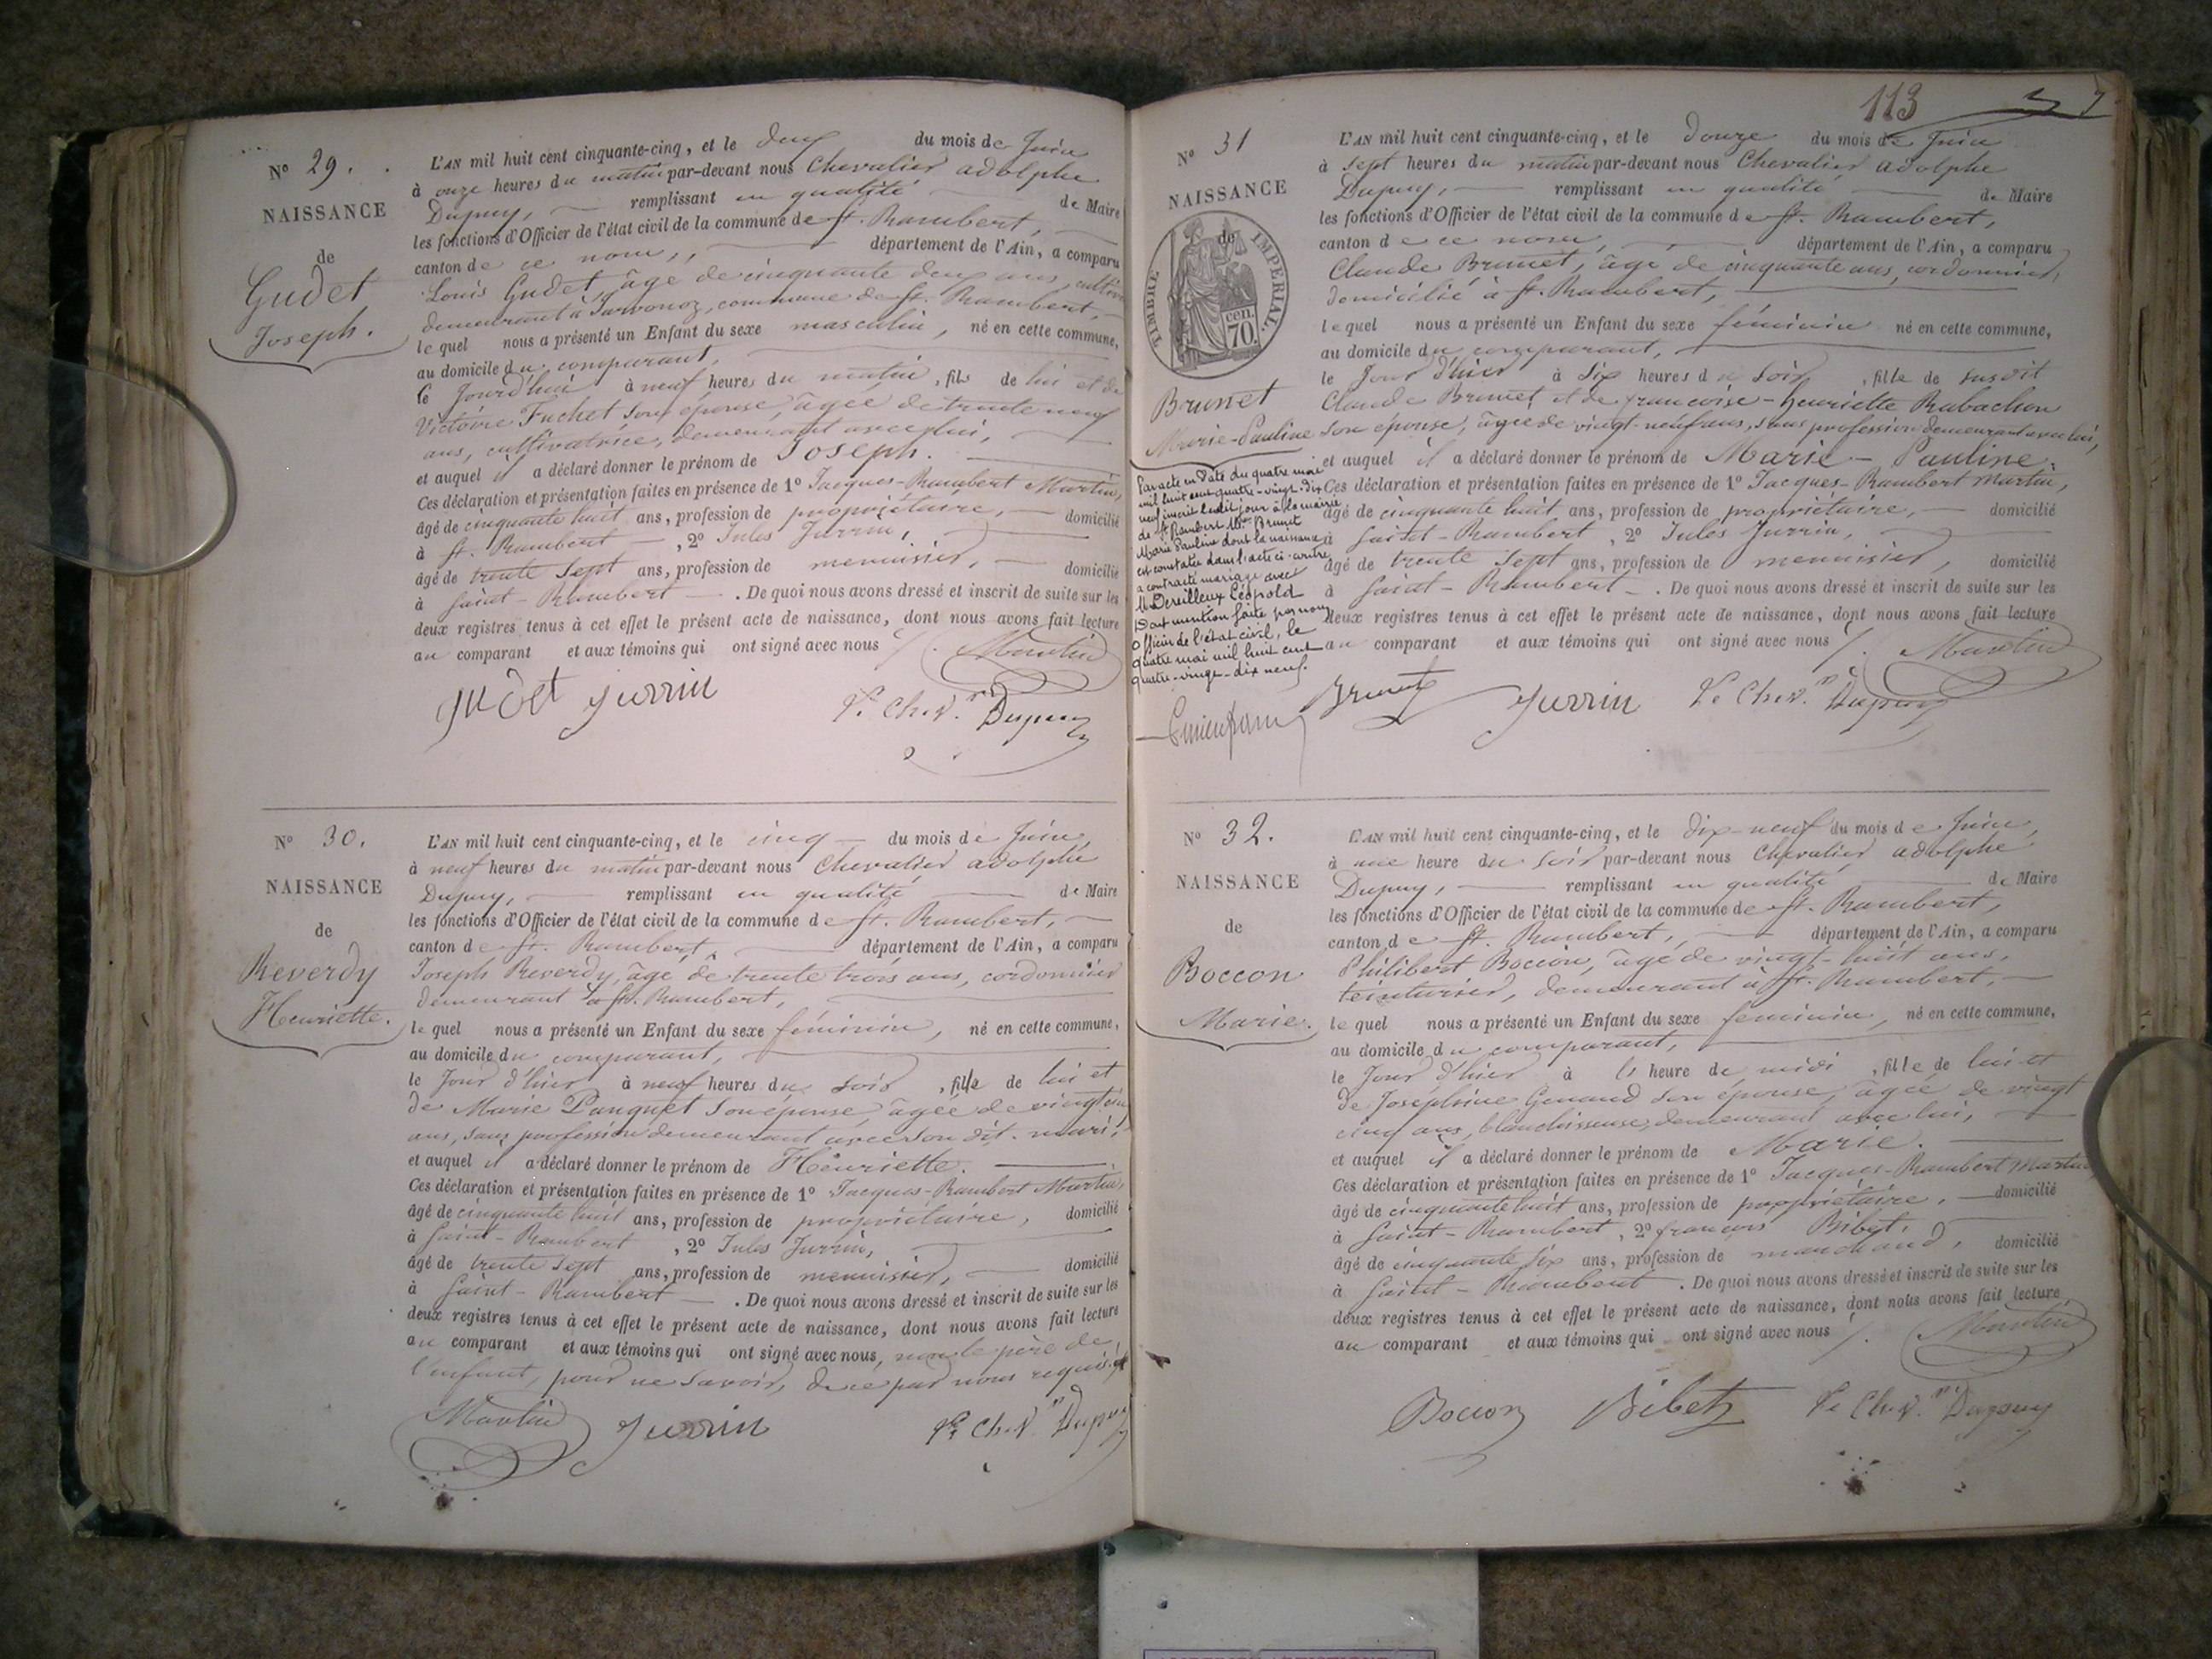 N° 29.
NAISSANCE
de
Gudet
Joseph.
L'AN mil huit cent cinquante-cinq, et le deux du mois de Juin
à onze heures du matin par-devant nous Chevalier adolphe
Dupuy, remplissant en qualité de Maire
les fonctions d'Officier de l'état civil de la commune de St. Rambert,
canton de ce nom, département de l'Ain, a comparu
Louis Gudet, âgé de cinquante deux ans,
demeurant à commune de St. Rambert,
lequel nous a présenté un Enfant du sexe masculin, né en cette commune,
au domicile du comparant,
le Jourd'hui à neuf heures du matin, fils de lui et de
Victoire Fuchet son épouse, âgée de trente neuf
ans, cultivatrice, demeurant avec lui,
et auquel il a déclaré donner le prénom de Joseph.
Ces déclaration et présentation faites en présence de 1° Jacques-Rambert Martin,
âgé de cinquante huit ans, profession de propriétaire, domicilié
à St. Rambert, 2° Jules Jurrin,
âgé de trente sept ans, profession de menuisier, domicilié
à Saint-Rambert. De quoi nous avons dressé et inscrit de suite sur les
deux registres tenus à cet effet le présent acte de naissance, dont nous avons fait lecture
au comparant et aux témoins qui ont signé avec nous
Martin
Gudet Jurrin Le Chev.er Dupuy
N° 30.
NAISSANCE
de
Reverdy
Henriette.
L'AN mil huit cent cinquante-cinq, et le cinq du mois de Juin
à neuf heures du matin par-devant nous Chevalier adolphe
Dupuy, remplissant en qualité de Maire
les fonctions d'Officier de l'état civil de la commune de St. Rambert,
canton de St. Rambert, département de l'Ain, a comparu
Joseph Reverdy, âgé de trente trois ans, cordonnier
demeurant à St. Rambert,
lequel nous a présenté un Enfant du sexe féminin, né en cette commune,
au domicile du comparant,
le Jour d'hier à neuf heures du soir, fille de lui et
de Marie Panquet son épouse, âgée de vingt
ans, sans profession demeurant avec son dit mari,
et auquel il a déclaré donner le prénom de Henriette.
Ces déclaration et présentation faites en présence de 1° Jacques-Rambert Martin,
âgé de cinquante huit ans, profession de propriétaire, domicilié
à Saint-Rambert, 2° Jules Jurrin,
âgé de trente sept ans, profession de menuisier, domicilié
à Saint-Rambert. De quoi nous avons dressé et inscrit de suite sur les
deux registres tenus à cet effet le présent acte de naissance, dont nous avons fait lecture
au comparant et aux témoins qui ont signé avec nous, non le père de
l'enfant, pour ne savoir, de ce par nous requis.
Martin Jurrin Le Chev.er Dupuy
113
N° 31
NAISSANCE
de
TIMBRE IMPERIAL.
70 cen.
Brunet
Marie-Pauline
Par acte en date du quatre mai
mil huit cent quatre-vingt-dix
neuf inscrit ledit jour à la mairie
de St Rambert Mle Brunet
Marie Pauline dont la naissance
est constatée dans l'acte ci-contre
a contracté mariage avec
M Dereilleux Léopold
Dont mention faite par nous
Officier de l'état civil, le
quatre mai mil huit cent
quatre-vingt-dix neuf.
L'AN mil huit cent cinquante-cinq, et le douze du mois de Juin
à sept heures du matin par-devant nous Chevalier adolphe
Dupuy, remplissant en qualité de Maire
les fonctions d'Officier de l'état civil de la commune de St. Rambert,
canton de ce nom, département de l'Ain, a comparu
Claude Brunet, âgé de cinquante ans, cordonnier,
domicilié à St. Rambert,
lequel nous a présenté un Enfant du sexe féminin né en cette commune,
au domicile du comparant,
le Jour d'hier à six heures du soir, fille de susdit
Claude Brunet et de françoise-henriette Rabachon
son épouse, âgée de vingt-neuf ans, sans profession demeurant avec lui,
et auquel il a déclaré donner le prénom de Marie-Pauline
Ces déclaration et présentation faites en présence de 1° Jacques-Rambert Martin,
âgé de cinquante huit ans, profession de propriétaire, domicilié
à Saint-Rambert, 2° Jules Jurrin,
âgé de trente sept ans, profession de menuisier, domicilié
à Saint-Rambert. De quoi nous avons dressé et inscrit de suite sur les
deux registres tenus à cet effet le présent acte de naissance, dont nous avons fait lecture
au comparant et aux témoins qui ont signé avec nous
Martin
Brunet Jurrin Le Chev.er Dupuy
N° 32.
NAISSANCE
de
Boccon
Marie.
L'AN mil huit cent cinquante-cinq, et le dix-neuf du mois de Juin,
à une heure du soir par-devant nous Chevalier adolphe
Dupuy, remplissant en qualité de Maire
les fonctions d'Officier de l'état civil de la commune de St. Rambert,
canton de St. Rambert, département de l'Ain, a comparu
Philibert Boccon, âgé de vingt-huit ans,
teinturier, demeurant à St. Rambert,
lequel nous a présenté un Enfant du sexe féminin, né en cette commune,
au domicile du comparant,
le Jour d'hier à l' heure de midi, fille de lui et
de Joséphine Genaud son épouse, âgée de vingt
cinq ans, blanchisseuse, demeurant avec lui,
et auquel il a déclaré donner le prénom de Marie.
Ces déclaration et présentation faites en présence de 1° Jacques-Rambert Martin
âgé de cinquante huit ans, profession de propriétaire, domicilié
à Saint-Rambert, 2° françois Bibet,
âgé de cinquante six ans, profession de marchand, domicilié
à Saint-Rambert. De quoi nous avons dressé et inscrit de suite sur les
deux registres tenus à cet effet le présent acte de naissance, dont nous avons fait lecture
au comparant et aux témoins qui ont signé avec nous
Martin
Boccon Bibet Le Chev.er Dupuy